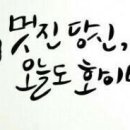 멋진 당신,
오늘도 화이